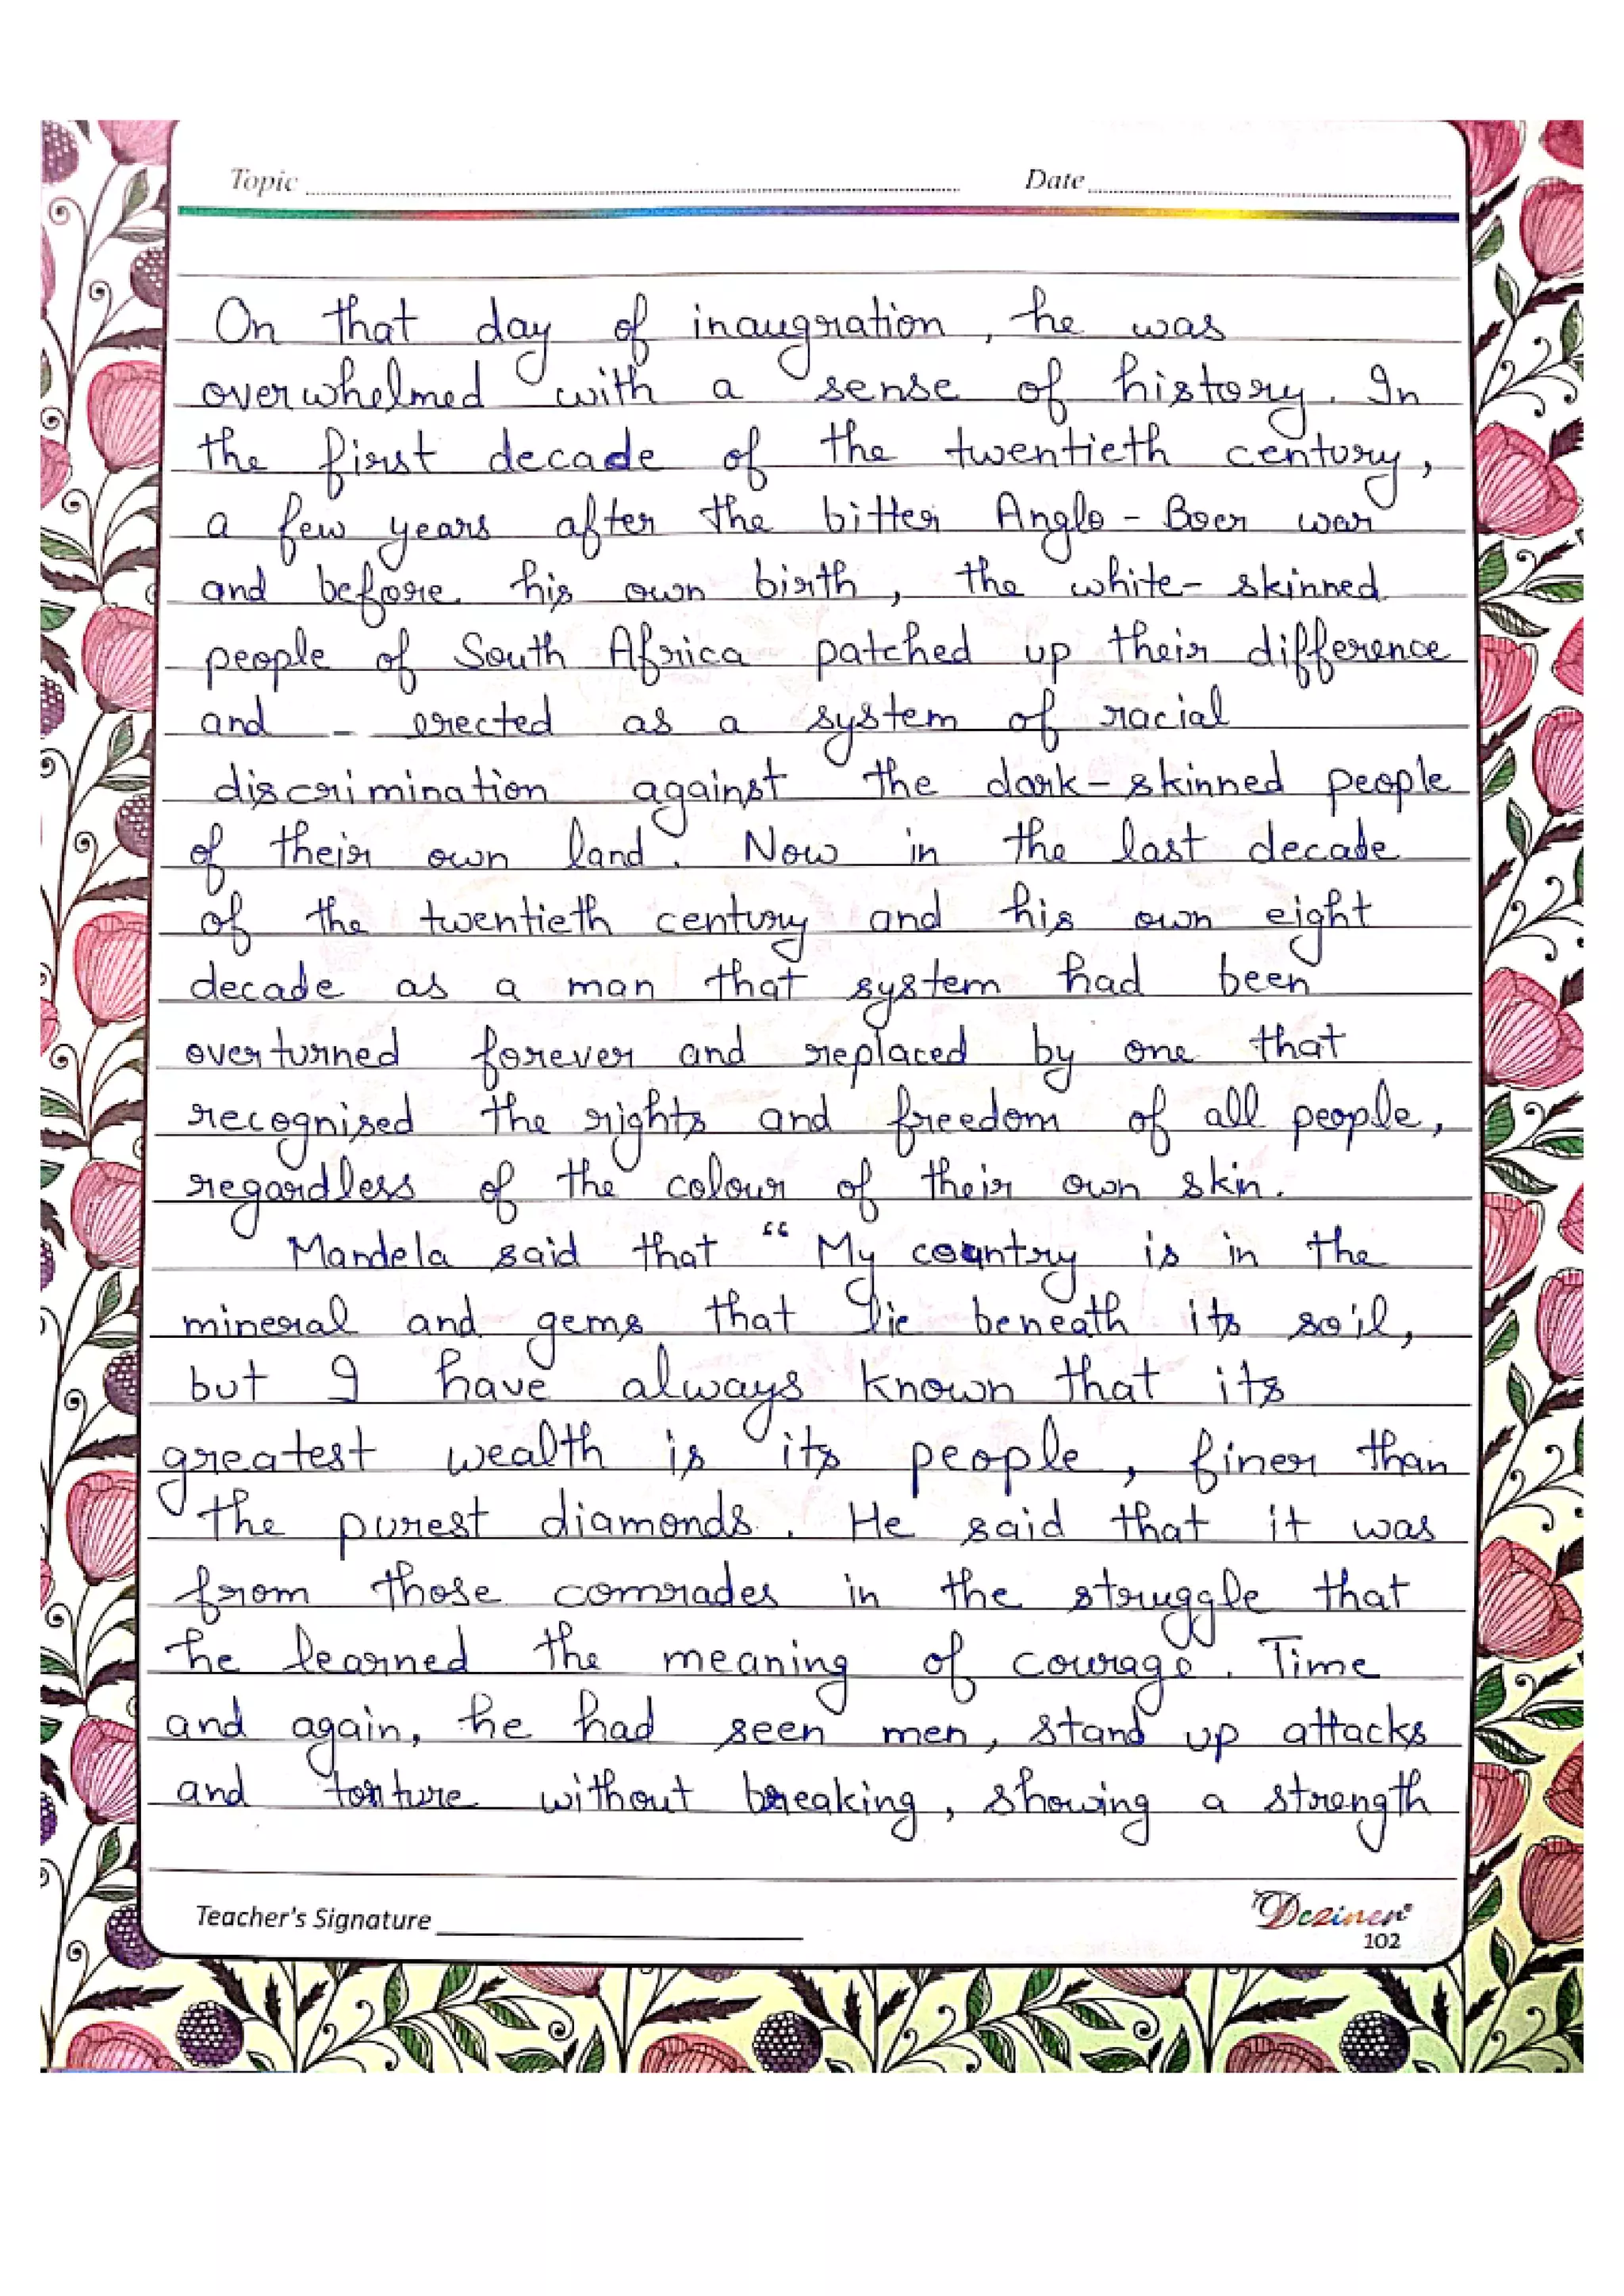 Topic Date
On that day of inaugration, he was
overwhelmed with a sense of history. In
the first decade of the twentieth century,
a few years after the bitter Anglo - Boer war
and before his own birth, the white- skinned
people of South Africa patched up their difference
and - erected as a system of racial
discrimination against the dark - skinned people
of their own land. Now in the last decade
of the twentieth century and his own eight
decade as a man that system had been
overturned forever and replaced by one that
recognised the rights and freedom of all people,
regardless of the colour of their own skin.
Mandela said that “ My country is in the
mineral and gems that lie beneath its soil,
but I have always known that its
greatest wealth is its people, finer than
the purest diamonds. He said that it was
from those comrades in the struggle that
he learned the meaning of courage. Time
and again, he had seen men, stand up attacks
and torture without breaking, showing a strength
Teacher's Signature
Deziner
102